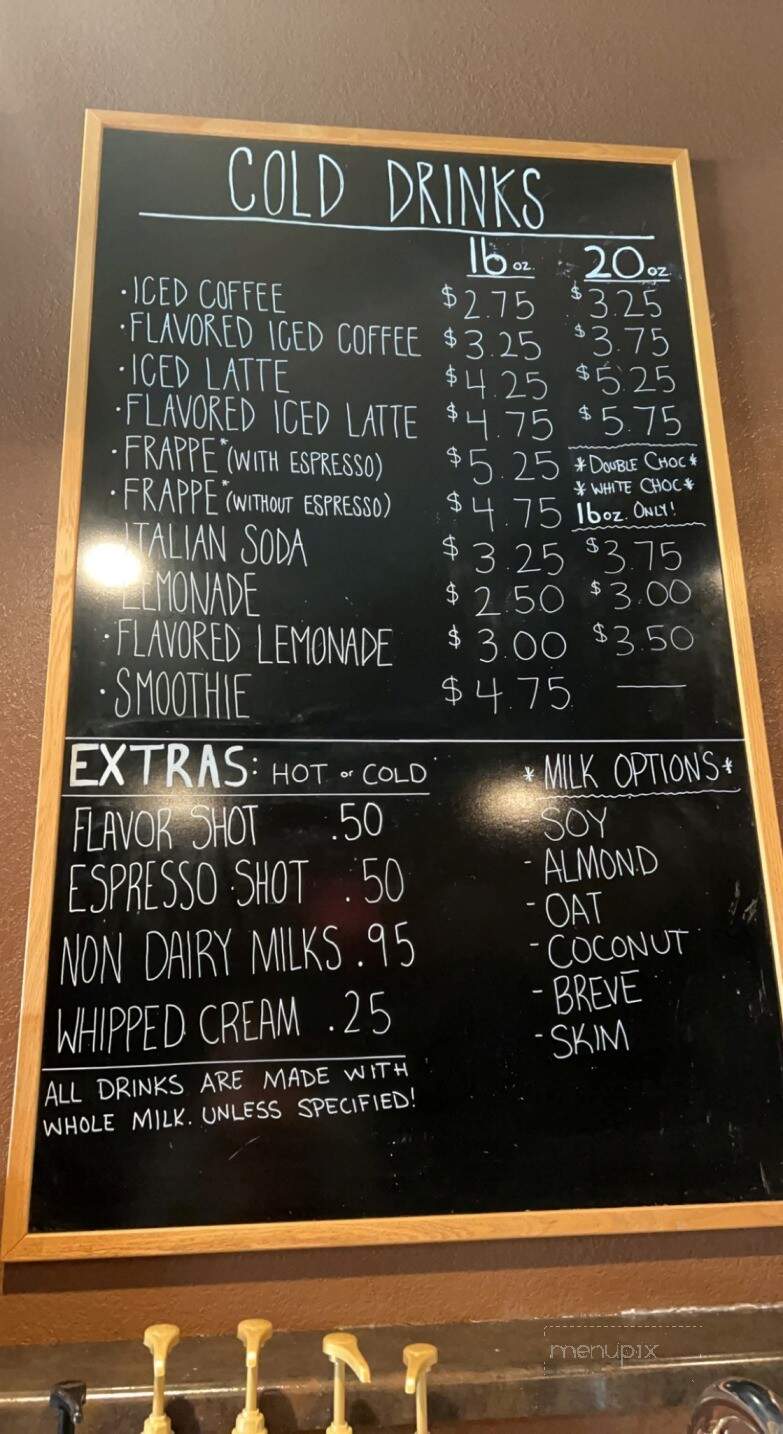 COLD DRINKS
16 oz. 20 oz
· ICED COFFEE $2.75 $3.25
· FLAVORED ICED COFFEE $3.25 $3.75
· ICED LATTE $4.25 $5.25
· FLAVORED ICED LATTE $4.75 $5.75
· FRAPPE* (WITH ESPRESSO) $5.25 *DOUBLE CHOC*
* WHITE CHOC*
· FRAPPE* (WITHOUT ESPRESSO) $4.75 16oz. ONLY!
ITALIAN SODA $3.25 $3.75
LEMONADE $2.50 $3.00
· FLAVORED LEMONADE $3.00 $3.50
· SMOOTHIE $4.75 —
EXTRAS: HOT or COLD
FLAVOR SHOT .50
ESPRESSO SHOT .50
NON DAIRY MILKS .95
WHIPPED CREAM .25
ALL DRINKS ARE MADE WITH
WHOLE MILK. UNLESS SPECIFIED!
* MILK OPTIONS*
- SOY
- ALMOND
- OAT
- COCONUT
- BREVE
- SKIM
menupix